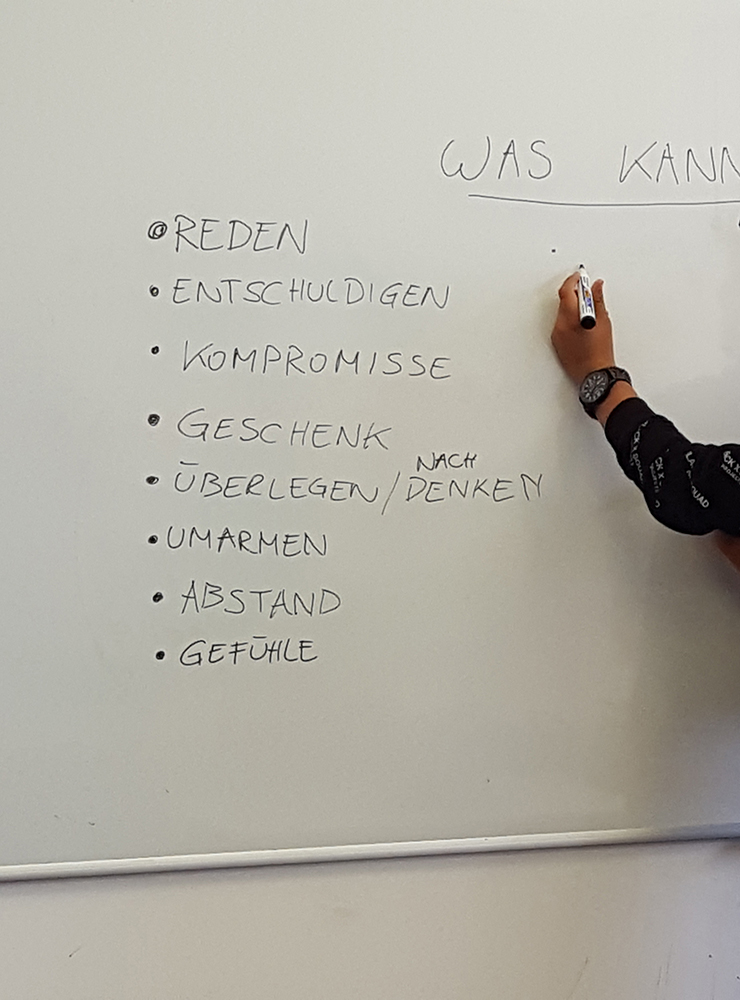 WAS KANN
REDEN
ENTSCHULDIGEN
KOMPROMISSE
GESCHENK
NACH
ÜBERLEGEN/DENKEN
UMARMEN
ABSTAND
GEFÜHLE